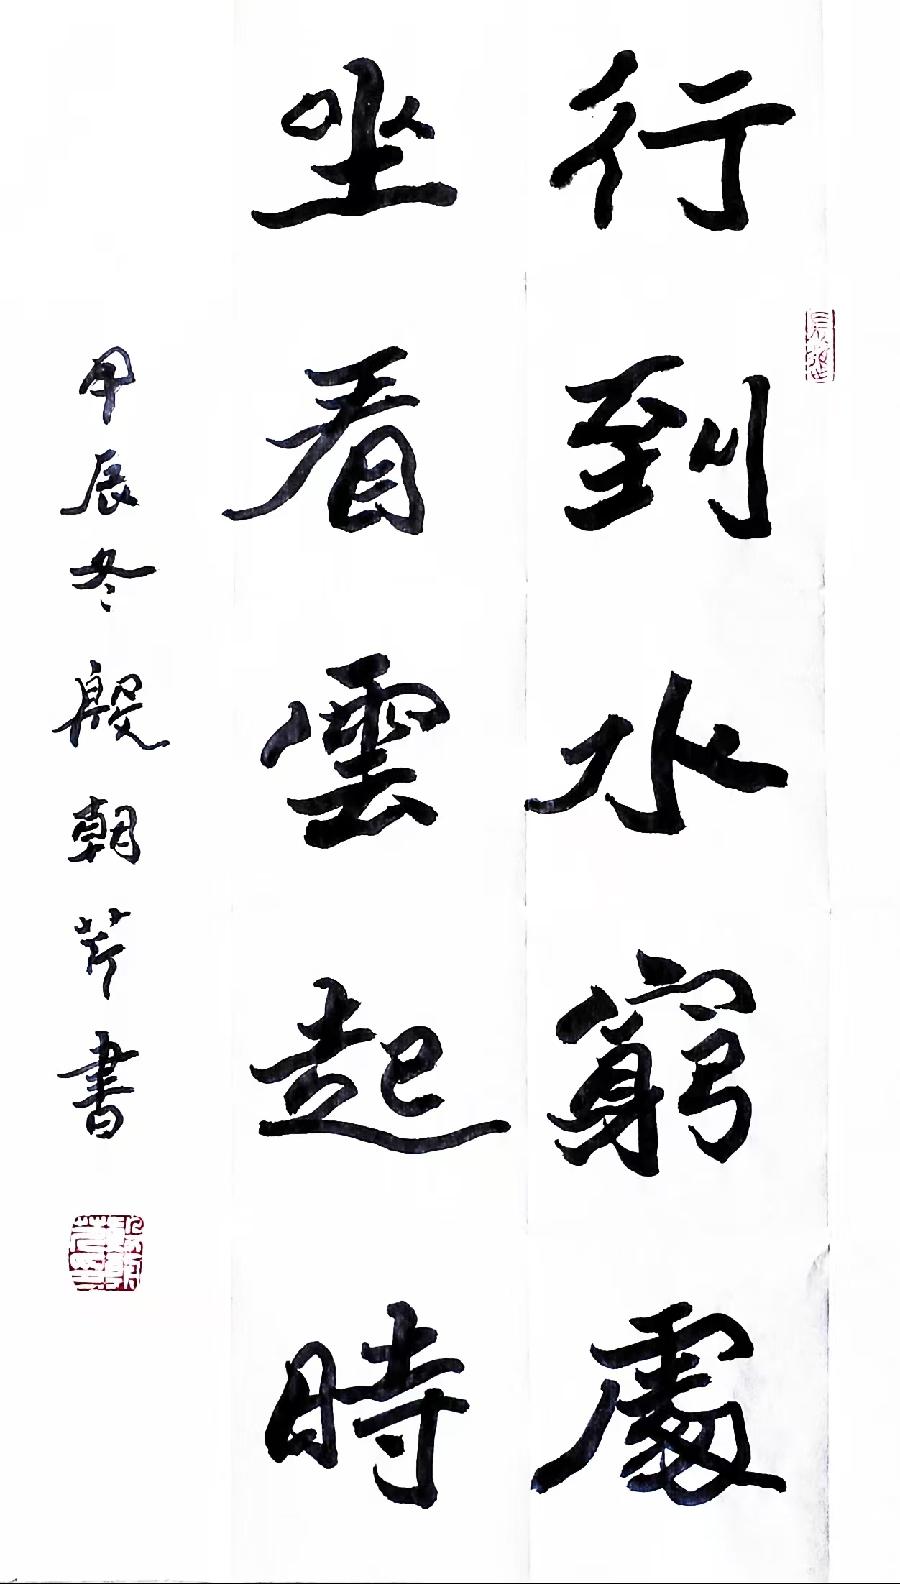 行到水窮處
坐看雲起時
甲辰冬殷朝芹書